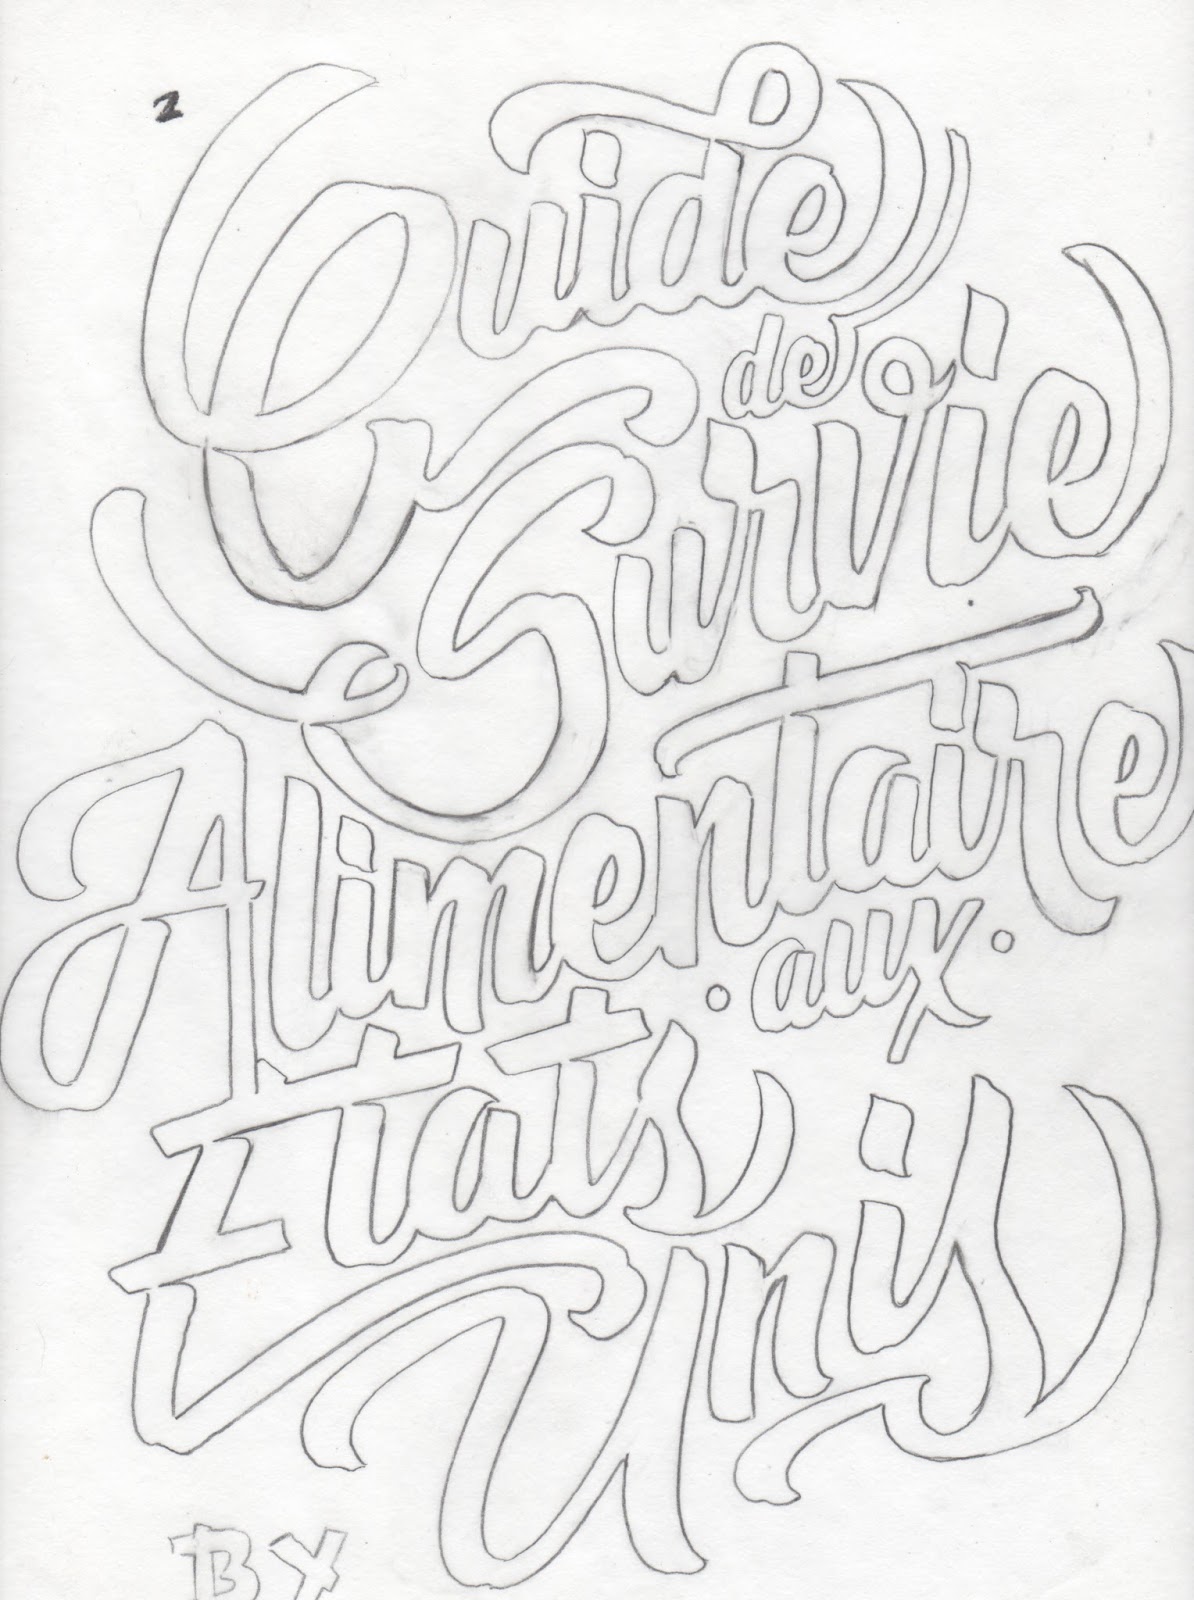 2
Guide
de
Survie
Alimentaire
aux
Etats
Unis
BY